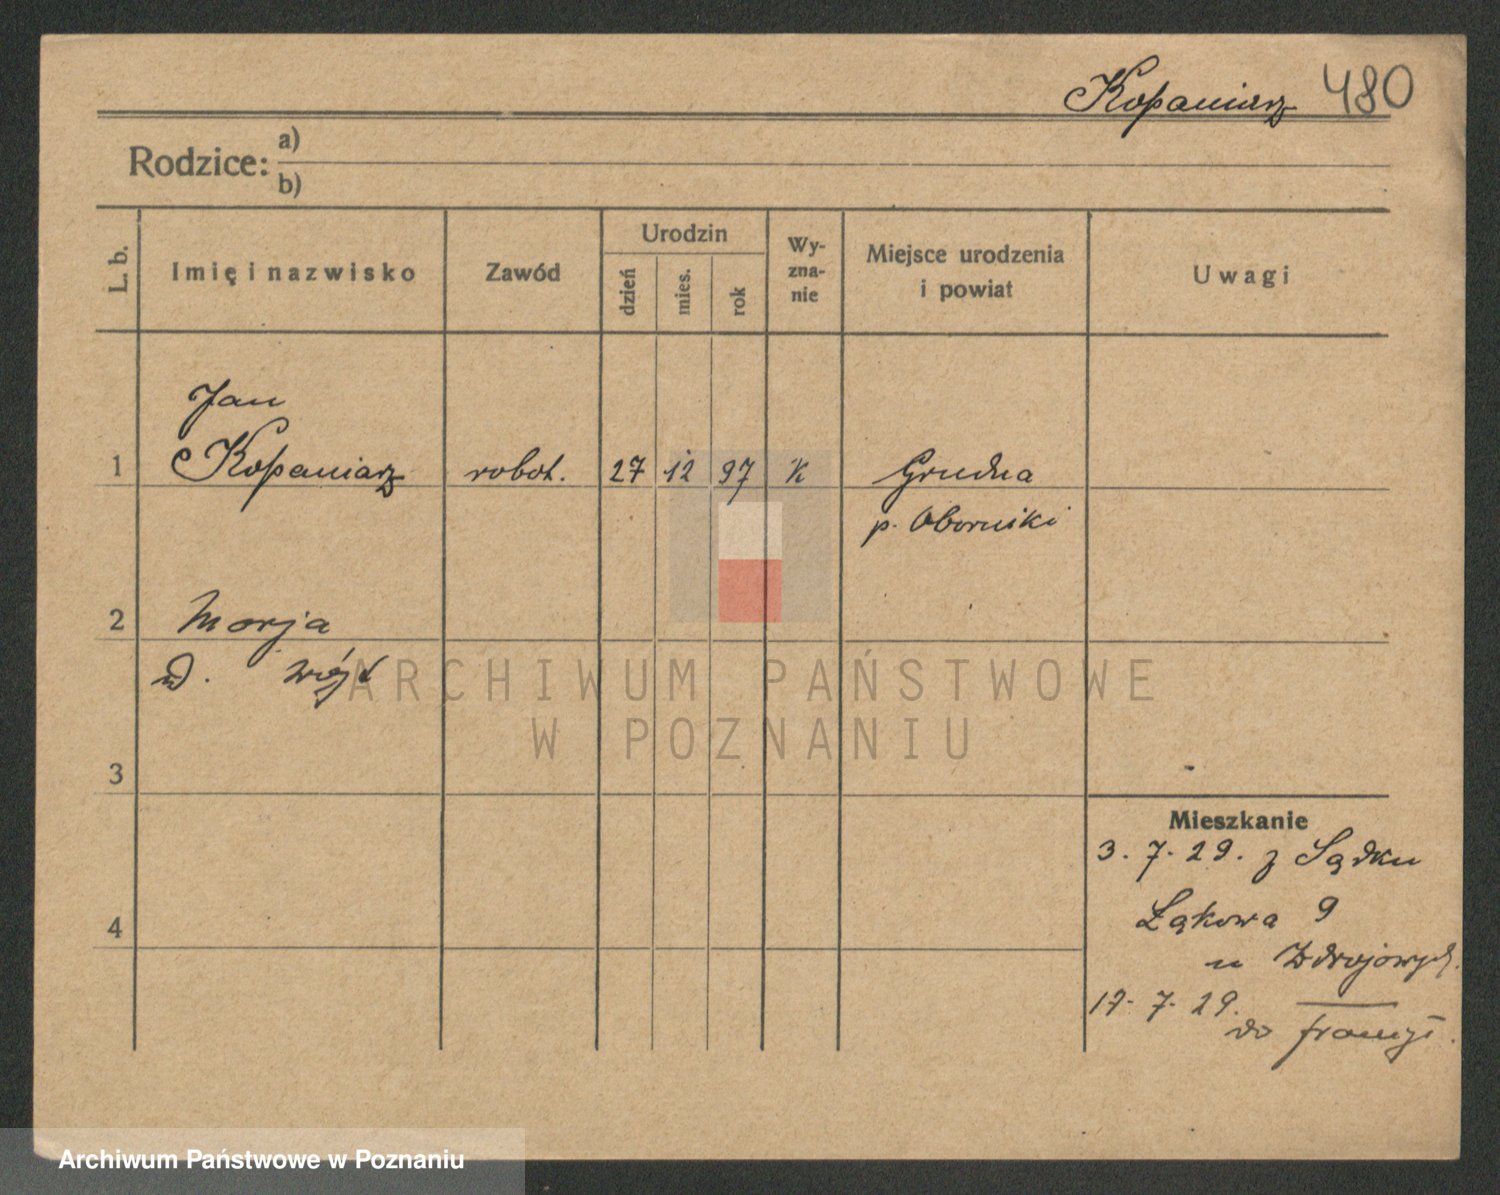 Kopaniarz 480
Rodzice: a)
b)
L. b.
Imię i nazwisko
Zawód
Urodzin
dzień
mies.
rok
Wy-
zna-
nie
Miejsce urodzenia
i powiat
Uwagi
Jan
1 Kopaniarz robot. 27 12 97 K Grudna
p. Oborniki
2 Marja
d. Wójt
3
4
Mieszkanie
3. 7. 29. z Sądku
Łąkowa 9
u Zdrojowych.
17. 7. 29.
do
ARCHIWUM PAŃSTWOWE
W POZNANIU
Archiwum Państwowe w Poznaniu